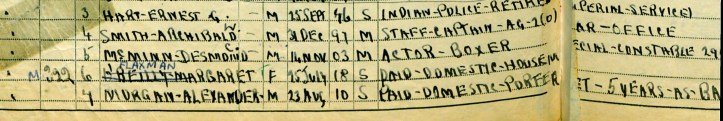 3 HART-ERNEST G. - M 25 SEPT 76 S INDIAN-POLICE-RETIRED IMPERIAL-SERVICE)
4 SMITH-ARCHIBALD M 31 DEC 97 M STAFF-CAPTAIN-AG-2(O) WAR-OFFICE
5 MCMINN-DESMOND C - M 14 NOV 03 M ACTOR-BOXER SPECIAL-CONSTABLE
FLAXMAN
M 322 6 O'REILLY-MARGARET F 25 July 18 S PAID-DOMESTIC-HOUSEM
7 MORGAN-ALEXANDER-M 23 AUG 10 S PAID-DOMESTIC-PORTER -5 YEARS-AS-BA